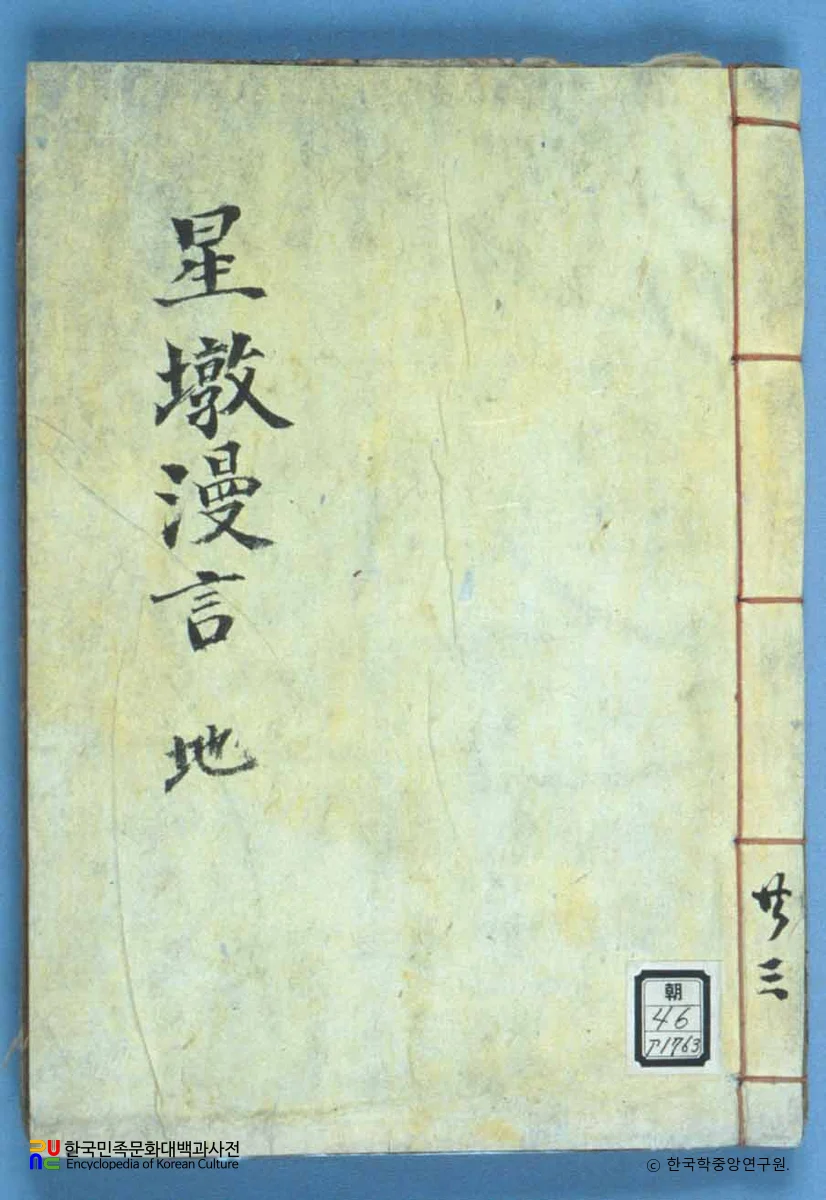 星墩漫言 地
共三
朝
46
ア1763
한국민족문화대백과사전
Encyclopedia of Korean Culture
© 한국학중앙연구원.